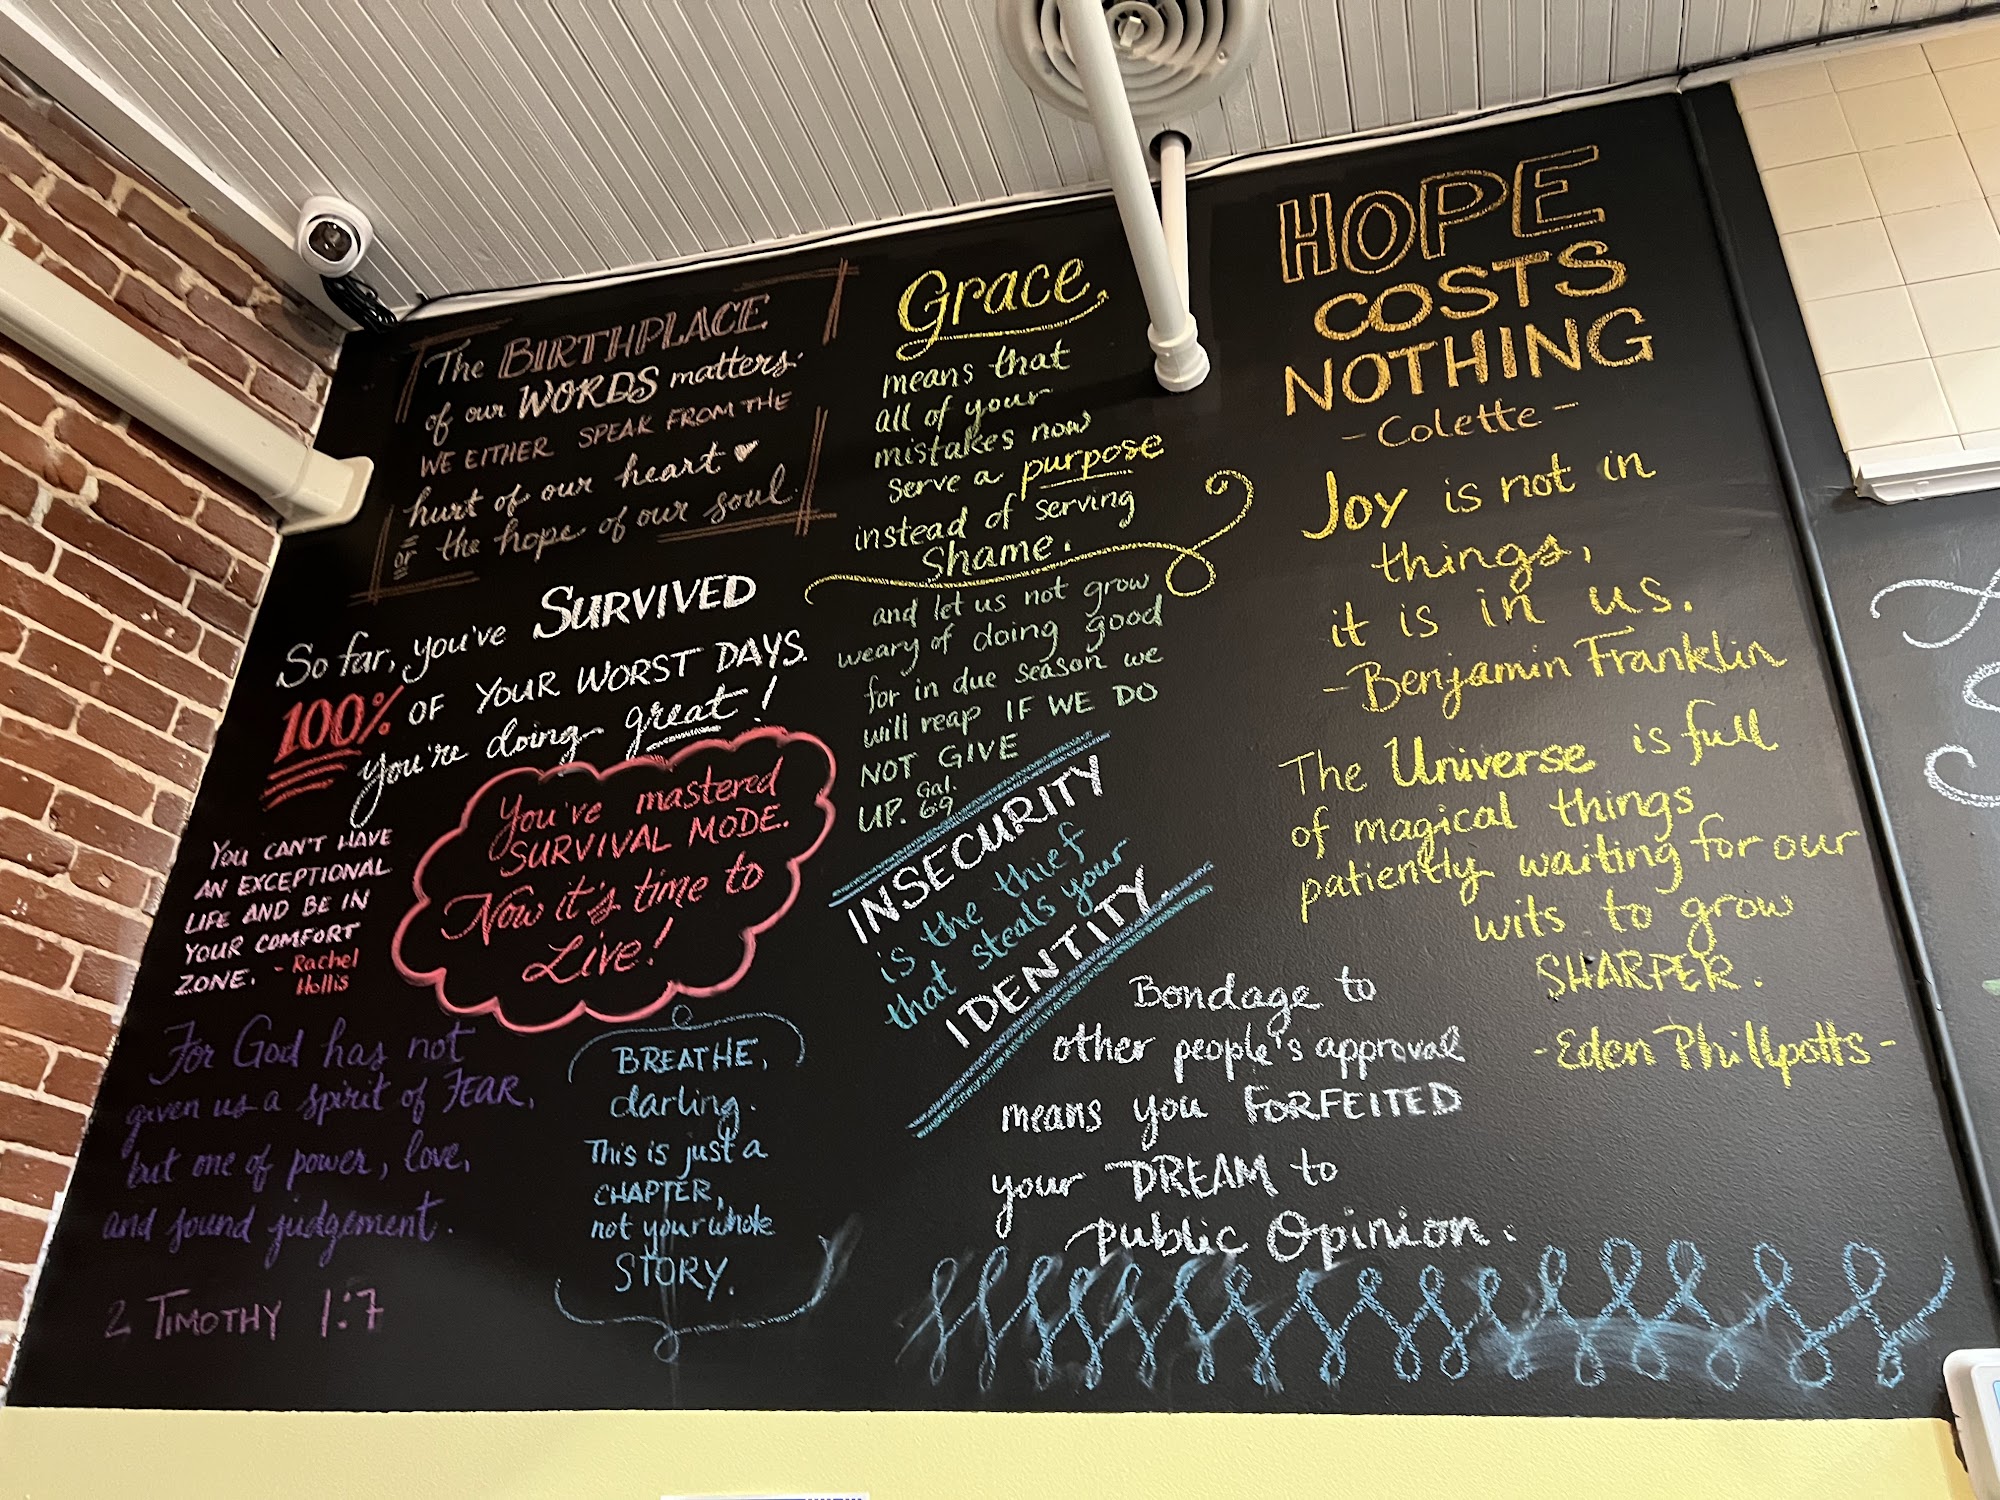 The BIRTHPLACE
of our WORDS matters.
WE EITHER SPEAK FROM THE
hurt of our heart
or the hope of our soul.
So far, you've SURVIVED
100% OF YOUR WORST DAYS.
you're doing great!
YOU CAN'T HAVE
AN EXCEPTIONAL
LIFE AND BE IN
YOUR COMFORT
ZONE. - Rachel
Hollis
You've mastered
SURVIVAL MODE.
Now it's time to
Live!
For God has not
given us a spirit of FEAR,
but one of power, love,
and sound judgement.
2 TIMOTHY 1:7
BREATHE,
darling.
This is just a
CHAPTER,
not your whole
STORY.
Grace
means that
all of your
mistakes now
serve a purpose
instead of serving
Shame.
and let us not grow
weary of doing good
for in due season we
will reap IF WE DO
NOT GIVE
UP. Gal.
6:9
INSECURITY
is the thief
that steals your
IDENTITY
Bondage to
other people's approval
means you FORFEITED
your DREAM to
public Opinion.
HOPE
COSTS
NOTHING
- Colette -
Joy is not in
things,
it is in us.
- Benjamin Franklin
The Universe is full
of magical things
patiently waiting for our
wits to grow
SHARPER.
- Eden Phillpotts -